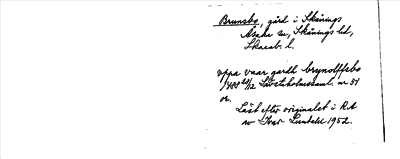 Brunsbo, gård i Skånings
Åsaka sn, Skånings hd,
Skarab. l.
vppa vaar gardh brynolffsbo
1400 20/12 Sko Klostersaml. nr 51
or.
Läst efter originalet i RA
av Ivar Lundahl 1952.